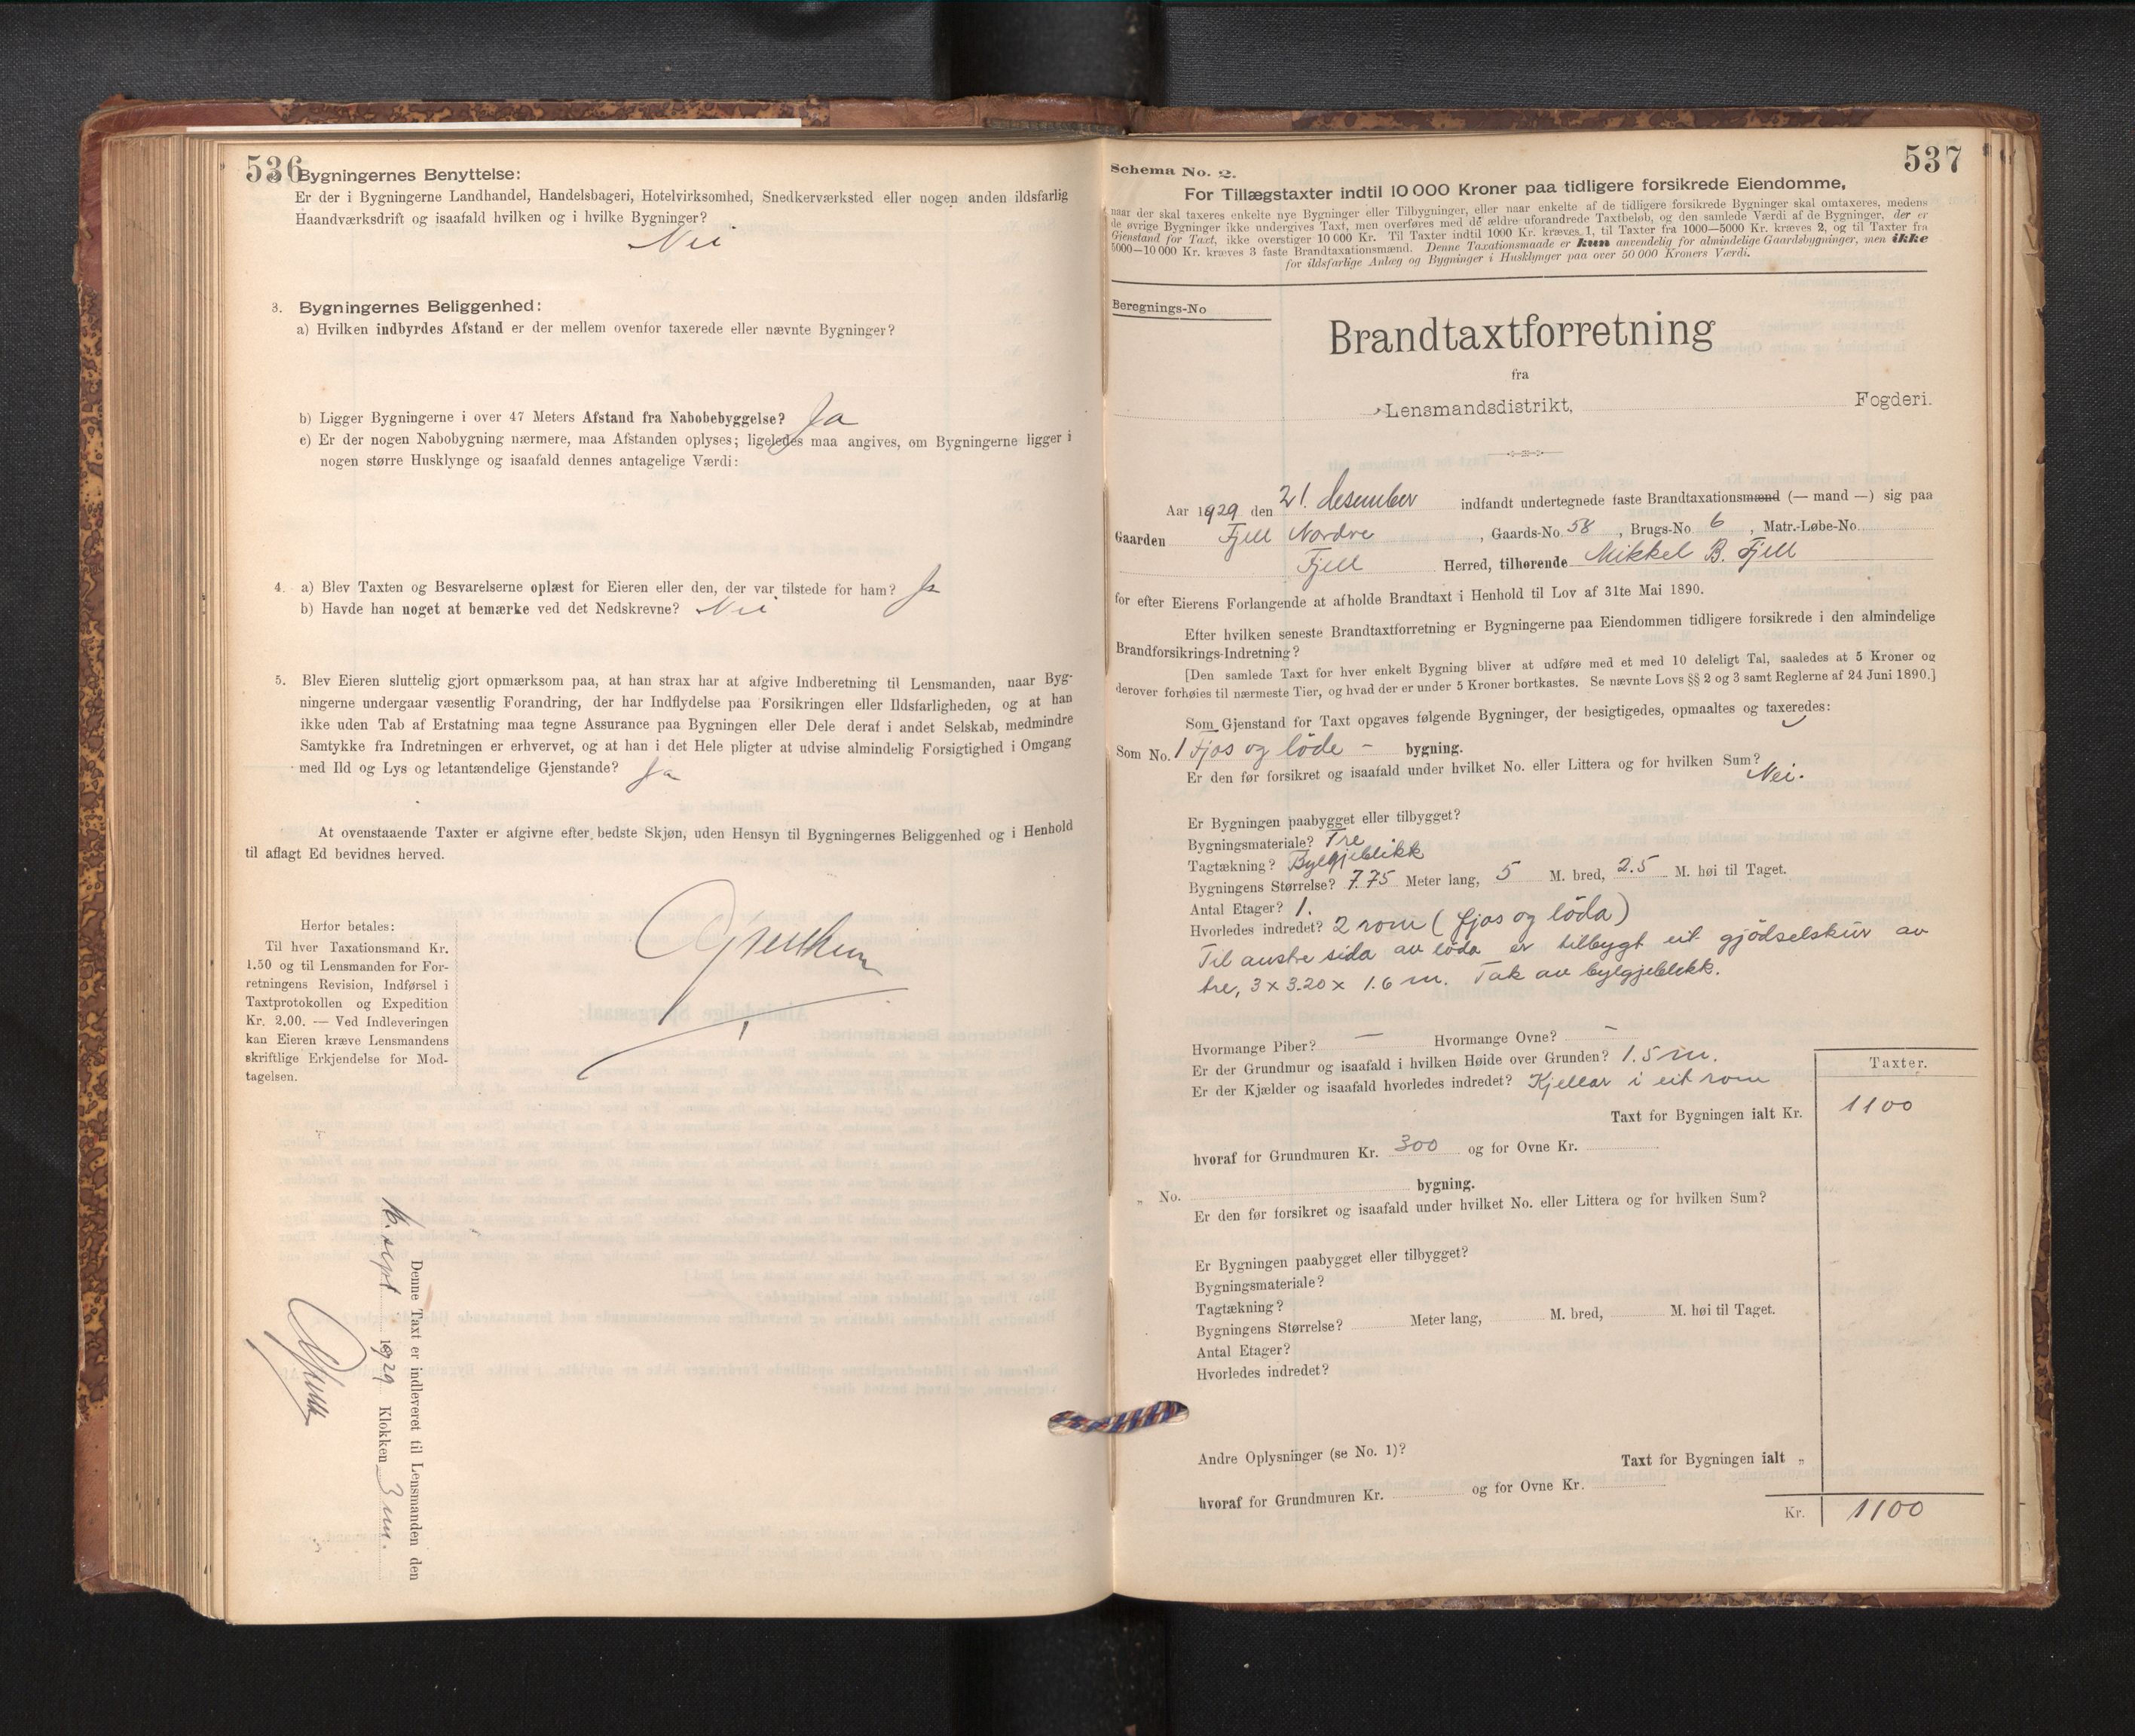 536
Bygningernes Benyttelse:
Er der i Bygningerne Landhandel, Handelsbageri, Hotelvirksomhed, Snedkerværksted eller nogen anden ildsfarlig
Haandværksdrift og isaafald hvilken og i hvilke Bygninger?
Nei
3. Bygningernes Beliggenhed:
a) Hvilken indbyrdes Afstand er der mellem ovenfor taxerede eller nævnte Bygninger?
b) Ligger Bygningerne i over 47 Meters Afstand fra Nabobebyggelse? Ja
c) Er der nogen Nabobygning nærmere, maa Afstanden oplyses; ligeledes maa angives, om Bygningerne ligger i
nogen større Husklynge og isaafald dennes antagelige Værdi:
4. a) Blev Taxten og Besvarelserne oplæst for Eieren eller den, der var tilstede for ham? Ja
b) Havde han noget at bemærke ved det Nedskrevne? Nei
5. Blev Eieren sluttelig gjort opmærksom paa, at han strax har at afgive Indberetning til Lensmanden, naar Byg-
ningerne undergaar væsentlig Forandring, der har Indflydelse paa Forsikringen eller Ildsfarligheden, og at han
ikke uden Tab af Erstatning maa tegne Assurance paa Bygningen eller Dele deraf i andet Selskab, medmindre
Samtykke fra Indretningen er erhvervet, og at han i det Hele pligter at udvise almindelig Forsigtighed i Omgang
med Ild og Lys og letantændelige Gjenstande? Ja
At ovenstaaende Taxter er afgivne efter bedste Skjøn, uden Hensyn til Bygningernes Beliggenhed og i Henhold
til aflagt Ed bevidnes herved.
Herfor betales:
Til hver Taxationsmand Kr.
1.50 og til Lensmanden for For-
retningens Revision, Indførsel i
Taxtprotokollen og Expedition
Kr. 2.00. — Ved Indleveringen
kan Eieren kræve Lensmandens
skriftlige Erkjendelse for Mod-
tagelsen.
Denne Taxt er indleveret til Lensmanden den
16. sept 1929 Klokken 3 em.
537
Schema No. 2.
For Tillægstaxter indtil 10 000 Kroner paa tidligere forsikrede Eiendomme,
naar der skal taxeres enkelte nye Bygninger eller Tilbygninger, eller naar enkelte af de tidligere forsikrede Bygninger skal omtaxeres, medens
de øvrige Bygninger ikke undergives Taxt, men overføres med de ældre uforandrede Taxtbeløb, og den samlede Værdi af de Bygninger, der er
Gjenstand for Taxt, ikke overstiger 10 000 Kr. Til Taxter indtil 1000 Kr. kræves 1, til Taxter fra 1000—5000 Kr. kræves 2, og til Taxter fra
5000—10 000 Kr. kræves 3 faste Brandtaxationsmænd. Denne Taxationsmaade er kun anvendelig for almindelige Gaardsbygninger, men ikke
for ildsfarlige Anlæg og Bygninger i Husklynger paa over 50 000 Kroners Værdi.
Beregnings-No
Brandtaxtforretning
fra
Lensmandsdistrikt, Fogderi.
Aar 1929 den 21. desember indfandt undertegnede faste Brandtaxationsmænd (— mand —) sig paa
Gaarden Fjell Nordre, Gaards-No 58, Brugs-No 6, Matr.-Løbe-No.
Fjell Herred, tilhørende Mikkel B. Fjell
for efter Eierens Forlangende at afholde Brandtaxt i Henhold til Lov af 31te Mai 1890.
Efter hvilken seneste Brandtaxtforretning er Bygningerne paa Eiendommen tidligere forsikrede i den almindelige
Brandforsikrings-Indretning?
[Den samlede Taxt for hver enkelt Bygning bliver at udføre med et med 10 deleligt Tal, saaledes at 5 Kroner og
derover forhøies til nærmeste Tier, og hvad der er under 5 Kroner bortkastes. Se nævnte Lovs §§ 2 og 3 samt Reglerne af 24 Juni 1890.]
Som Gjenstand for Taxt opgaves følgende Bygninger, der besigtigedes, opmaaltes og taxeredes:
Som No. 1 Fjos og löde - bygning.
Er den før forsikret og isaafald under hvilket No. eller Littera og for hvilken Sum?
Nei.
Er Bygningen paabygget eller tilbygget?
Bygningsmateriale? Tre
Tagtækning? Bylgjeblikk
Bygningens Størrelse? 7.75 Meter lang, 5 M. bred, 2.5 M. høi til Taget.
Antal Etager? 1.
Hvorledes indredet? 2 rom (fjos og löda)
Til austre sida av löda er tilbygt eit gjödselskur av
tre, 3 x 3.20 x 1.6 m. Tak av bylgjeblekk.
Hvormange Piber? — Hvormange Ovne? —
Er der Grundmur og isaafald i hvilken Høide over Grunden? 1.5 m.
Er der Kjælder og isaafald hvorledes indredet? Kjellar i eit rom
Taxter.
Taxt for Bygningen ialt Kr. 1100
hvoraf for Grundmuren Kr. 300 og for Ovne Kr.
„ No. bygning.
Er den før forsikret og isaafald under hvilket No. eller Littera og for hvilken Sum?
Er Bygningen paabygget eller tilbygget?
Bygningsmateriale?
Tagtækning?
Bygningens Størrelse? Meter lang, M. bred, M. høi til Taget.
Antal Etager?
Hvorledes indredet?
Andre Oplysninger (se No. 1)?
Taxt for Bygningen ialt „
hvoraf for Grundmuren Kr. og for Ovne Kr.
Kr. 1100